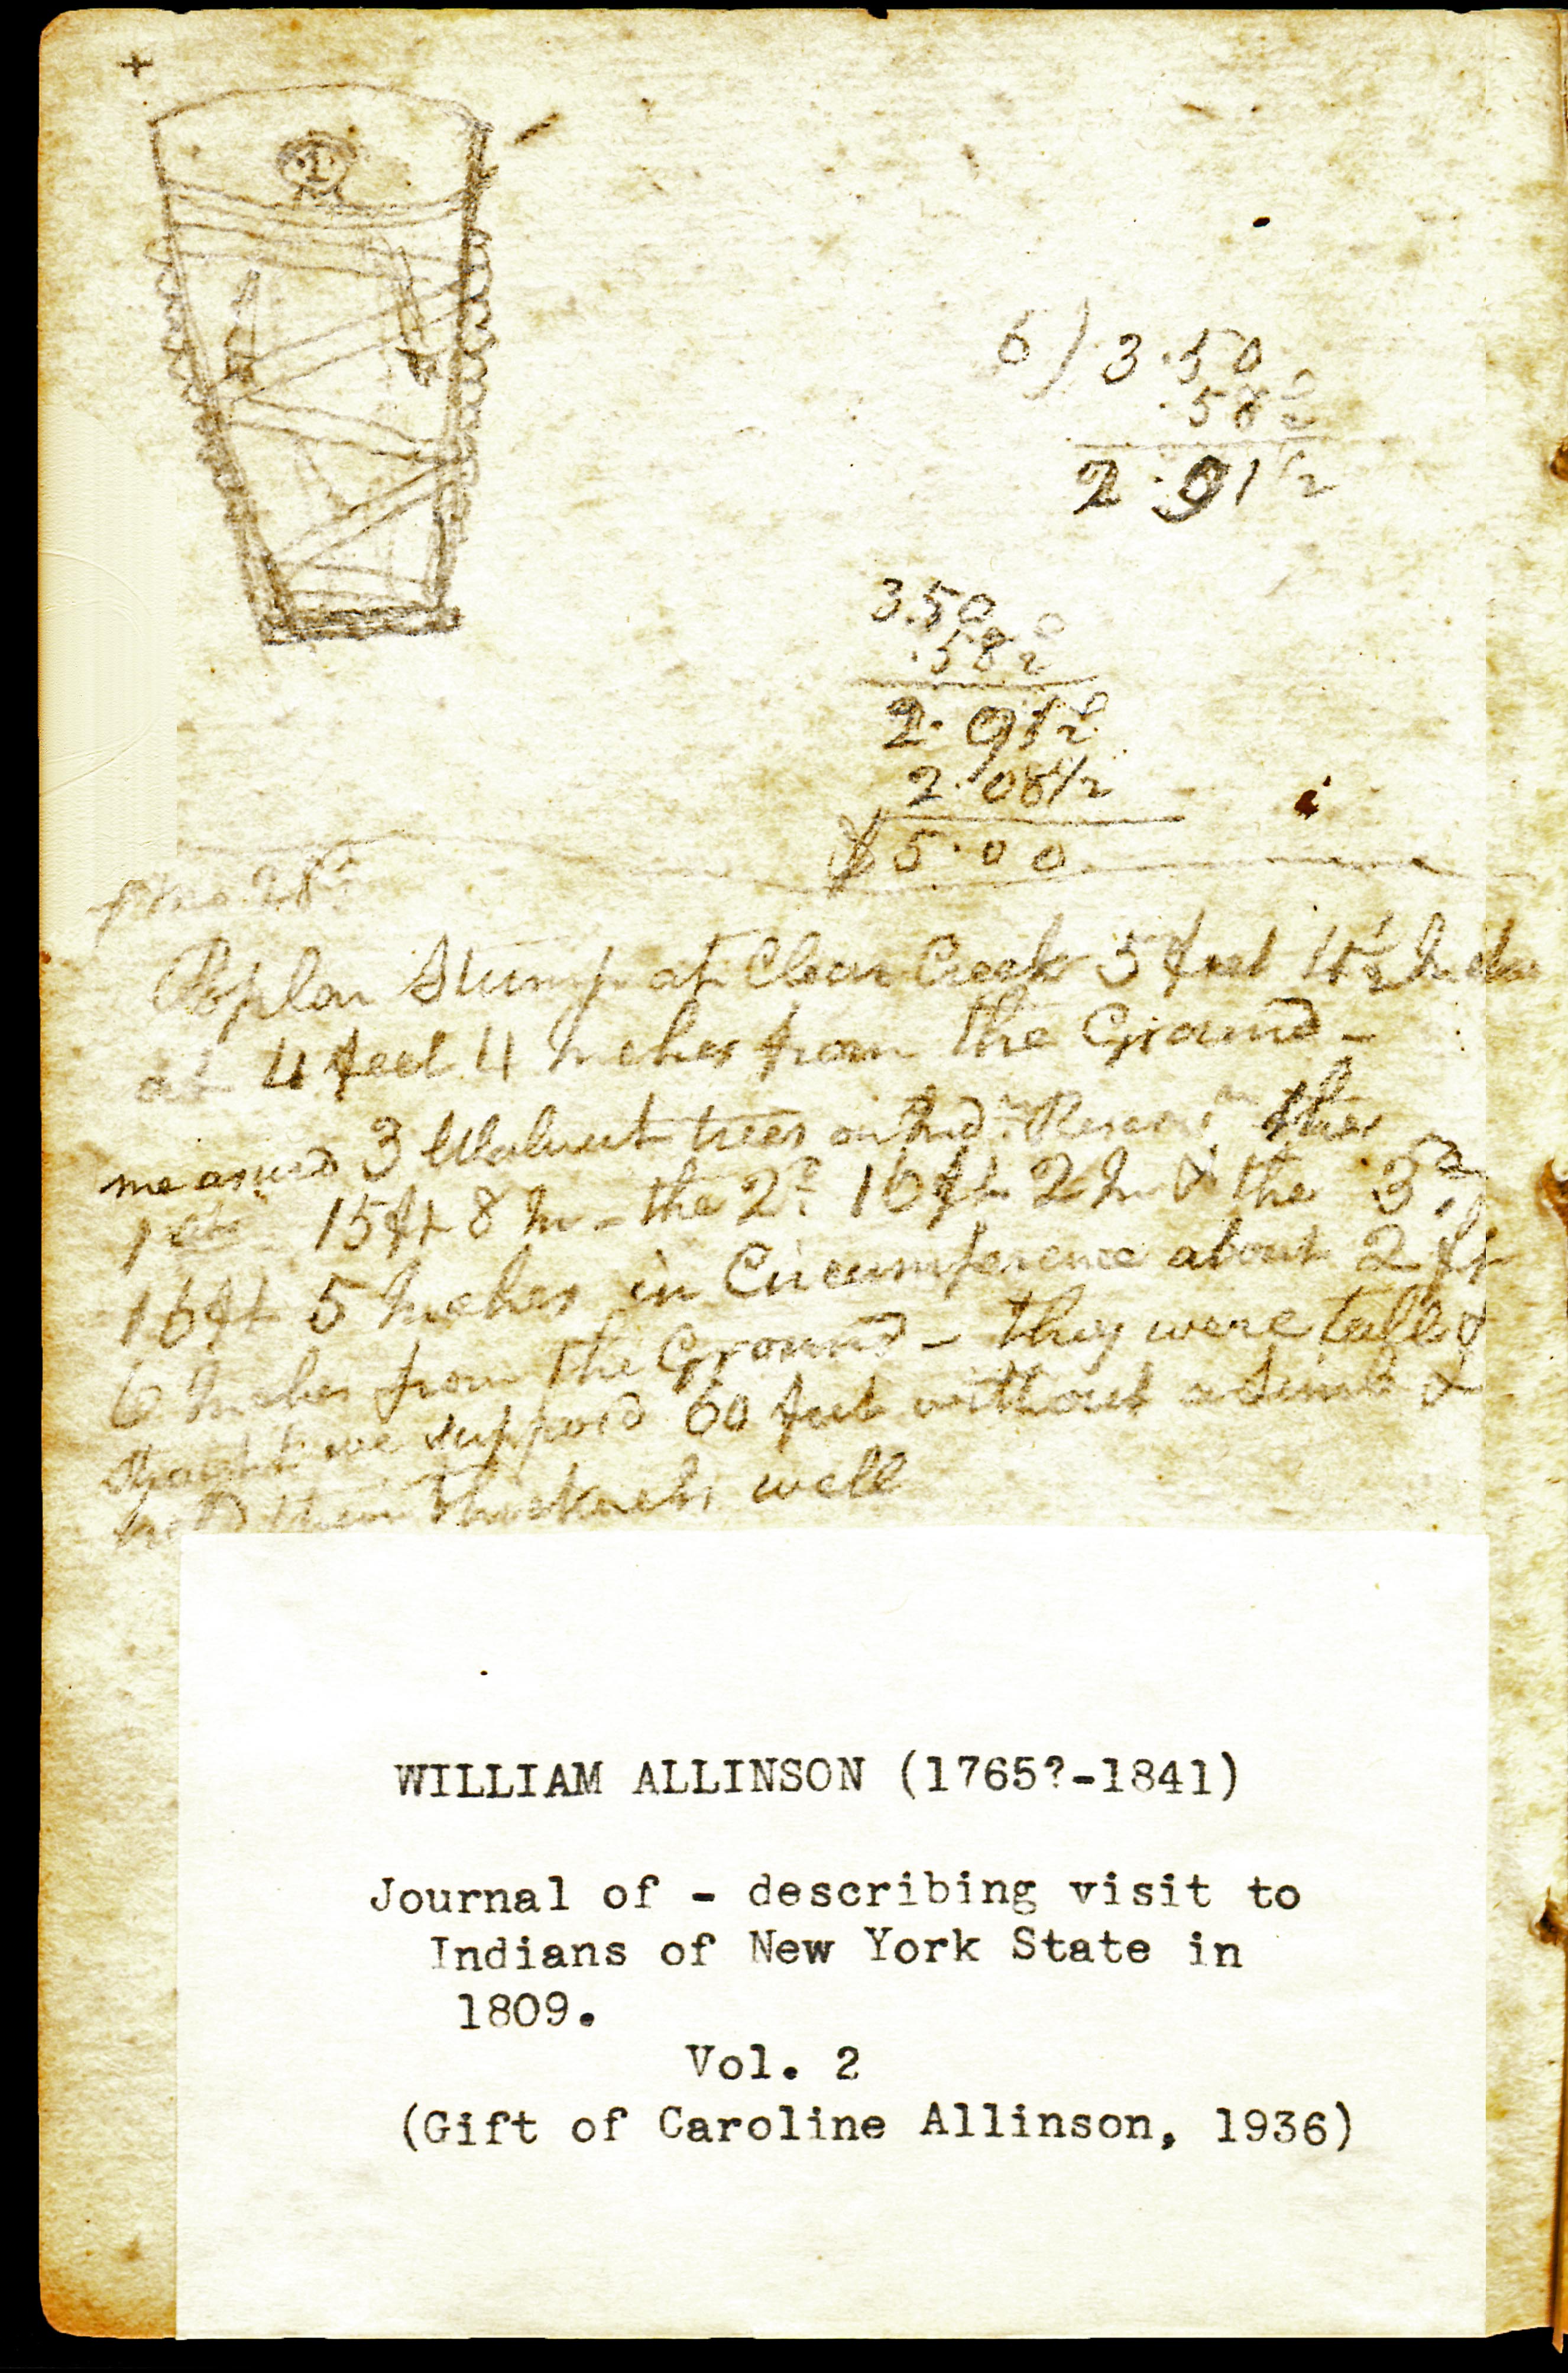 +
6) 3.50
.58 2/2
2.91 1/2
3.50
.58 2/2
2.91 2/2
2.08 1/2
$5.00
28
Poplar Stump at Clear Creek 5 feet 4 1/2 Inches
at 4 feet 4 Inches from the Ground -
measured 3 Walnut trees on Indn. Reservn. the
1st 15ft 8 In - the 2d. 16 ft 2 In & the 3d,
16ft 5 Inches in Circumference about 2 ft
6 Inches from the Ground - they were tall &
straight we suppos'd 60 feet without a Limb &
held their thickness well
WILLIAM ALLINSON (1765?-1841)
Journal of - describing visit to
Indians of New York State in
1809.
Vol. 2
(Gift of Caroline Allinson, 1936)